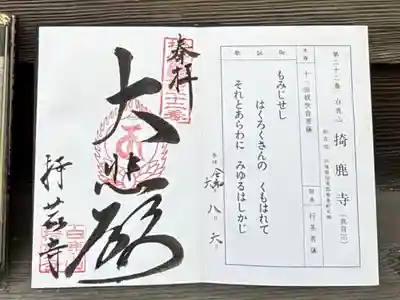 第二十二番 白鹿山 掎鹿寺 (真言宗)
本尊 十一面観世音菩薩 開基 行基菩薩
御詠歌
もみじせし
はくろくさんの くもはれて
それとあらわに みゆるはしかじ
令和 六 八 六
奉拝
大悲殿
掎鹿寺